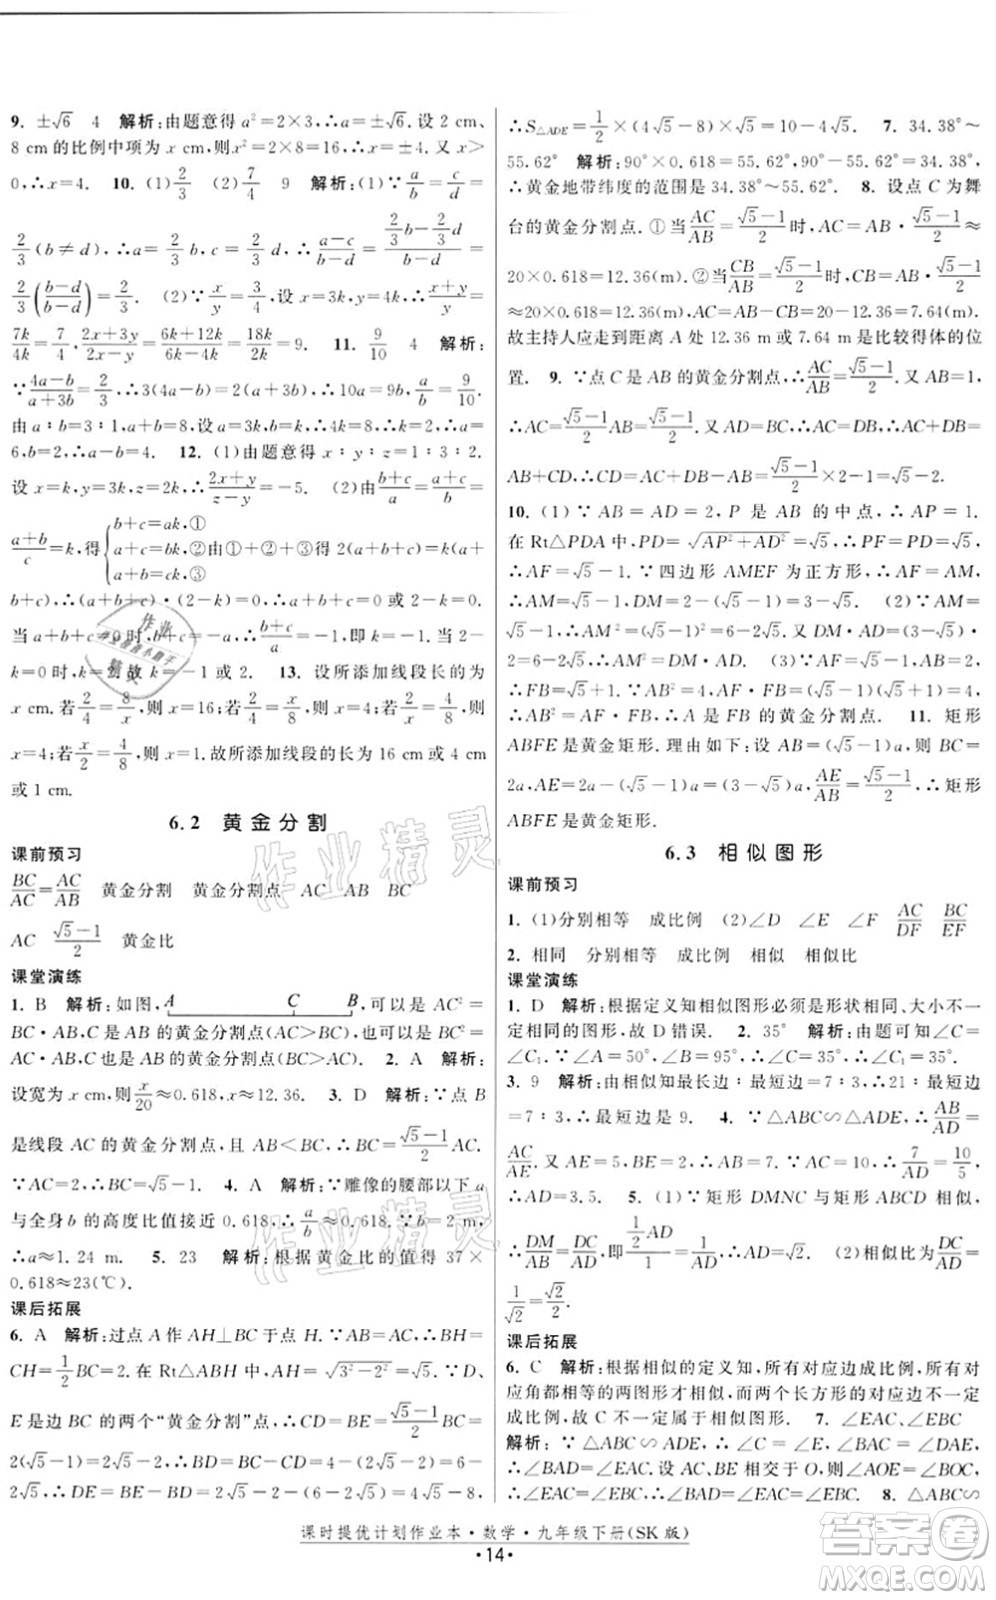 9. ±√6　4　解析:由题意得 a²=2×3,∴a=±√6. 设 2 cm、
8 cm 的比例中项为 x cm,则 x²=2×8=16,∴x=±4. 又 x>
0,∴x=4.　10. (1) 2/3　(2) 7/4　9　解析:(1)∵a/b=c/d=
2/3(b≠d),∴a=2/3 b,c=2/3 d,∴(a-c)/(b-d)=(2/3 b-2/3 d)/(b-d)=
2/3((b-d)/(b-d))=2/3.　(2)∵x/y=3/4,∴设 x=3k,y=4k,∴(x+y)/y=
7k/4k=7/4,(2x+3y)/(2x-y)=(6k+12k)/(6k-4k)=18k/2k=9.　11. 9/10　4　解析:
∵(4a-b)/(a+3b)=2/3,∴3(4a-b)=2(a+3b),∴10a=9b,∴a/b=9/10.
由 a∶b=3∶1,a+b=8,设 a=3k,b=k,∴3k+k=8,k=2,∴a=
6,b=2,∴a-b=4.　12. (1)由题意得 x∶y∶z=1∶3∶2.
设 x=k,y=3k,z=2k,∴(2x+y)/(z-y)=-5.　(2)由(b+c)/a=(a+c)/b=
(a+b)/c=k,得{b+c=ak,① a+c=bk,② a+b=ck,③ 由①+②+③得 2(a+b+c)=k(a+
b+c),∴(a+b+c)·(2-k)=0,∴a+b+c=0 或 2-k=0.
当 a+b+c=0 时,b+c=-a,∴(b+c)/a=-1,即 k=-1;当 2-
k=0 时,k=2. 故 k=-1 或 2.　13. 设所添加线段的长为
x cm. 若2/4=8/x,则 x=16;若2/x=4/8,则 x=4;若x/2=4/8,则
x=4;若x/2=4/8,则 x=1. 故所添加线段的长为 16 cm 或 4 cm
或 1 cm.
6.2　黄金分割
课前预习
BC/AC=AC/AB　黄金分割　黄金分割点　AC　AB　BC
AC　(√5-1)/2　黄金比
课堂演练
1. B　解析:如图,A C B,可以是 AC²=
BC·AB,C 是 AB 的黄金分割点(AC>BC),也可以是 BC²=
AC·AB,C 也是 AB 的黄金分割点(BC>AC).　2. A　解析:
设宽为 x cm,则x/20≈0.618,∴x≈12.36.　3. D　解析:∵点 B
是线段 AC 的黄金分割点,且 AB<BC,∴BC=(√5-1)/2 AC.
∵AC=2,∴BC=√5-1.　4. A　解析:∵雕像的腰部以下 a
与全身 b 的高度比值接近 0.618,∴a/b≈0.618. ∵b 为 2 m,
∴a≈1.24 m.　5. 23　解析:根据黄金比的值得 37×
0.618≈23(℃)
课后拓展
6. A　解析:过点 A 作 AH⊥BC 于点 H. ∵AB=AC,∴BH=
CH=1/2 BC=2. 在 Rt△ABH 中,AH=√(3²-2²)=√5. ∵D、
E 是边 BC 的两个“黄金分割”点,∴CD=BE=(√5-1)/2 BC=
2(√5-1)=2√5-2,∴BD=BC-CD=4-(2√5-2)=6-
2√5,∴DE=BE-BD=2√5-2-(6-2√5)=4√5-8,
∴S△ADE=1/2×(4√5-8)×√5=10-4√5.　7. 34.38°～
55.62°　解析:90°×0.618=55.62°,90°-55.62°=34.38°,
∴黄金地带纬度的范围是 34.38°～55.62°.　8. 设点 C 为舞
台的黄金分割点. ①当AC/AB=(√5-1)/2时,AC=AB×(√5-1)/2≈
20×0.618=12.36(m). ②当CB/AB=(√5-1)/2时,CB=AB×(√5-1)/2
≈20×0.618=12.36(m),AC=AB-CB=20-12.36=7.64(m).
故主持人应走到距离 A 处 12.36 m 或 7.64 m 是比较得体的位
置.　9. ∵点 C 是 AB 的黄金分割点,∴AC/AB=(√5-1)/2. 又 AB=1,
∴AC=(√5-1)/2 AB=(√5-1)/2. 又 AD=BC,∴AC=DB,∴AC+DB=
AB+CD,∴CD=AC+DB-AB=(√5-1)/2×2-1=√5-2.
10. (1)∵AB=AD=2,P 是 AB 的中点,∴AP=1.
在 Rt△PDA 中,PD=√(AP²+AD²)=√5,∴PF=PD=√5,
∴AF=√5-1. ∵四边形 AMEF 为正方形,∴AM=
AF=√5-1,DM=2-AM=3-√5.　(2)∵AF=
√5-1,∴AB²=4. ∵BP=1,PF=√5,
∴FB=√5+1. ∵AF·FB=(√5-1)(√5+1)=4,
∴AB²=AF·FB,∴A 是 FB 的黄金分割点.　11. 矩形
ABFE 是黄金矩形. 理由如下:设 AB=(√5-1)a,则 BC=
2a,AE=2a-(√5-1)a=(3-√5)a,∴AE/AB=(√5-1)/2,∴矩形
ABFE 是黄金矩形.
6.3　相似图形
课前预习
1. (1)分别相等　成比例　(2)∠D　∠E　∠F　AC/DF　BC/EF
2. 相同　分别相等　成比例　相似　相似比
课堂演练
1. D　解析:根据定义知相似图形必须是形状相同、大小不一
定相同的图形,故 D 错误.　2. 35°　解析:由题可知∠C=
∠C₁. ∵∠A=50°,∠B=95°,∴∠C=35°,∴∠C₁=35°.
3. 9　解析:由相似知最长边∶最短边=7∶3,∴21∶最短边
=7∶3,∴最短边是 9.　4. ∵△ABC∽△ADE,∴AB/AD=
AC/AE. 又∵AB=7,AE=5,AC=10,∴7/AD=10/5,
∴AD=3.5.　5. (1)∵矩形 DMNC 与矩形 ABCD 相似,
∴DM/DC=DC/AD,即(1/2 AD)/1=1/AD,∴AD=√2.　(2)相似比为DM/DC=
1/√2=√2/2.
课后拓展
6. C　解析:根据相似的定义知,所有对应边成比例,所有对
应角都相等的两图形才相似,而两个长方形的对应边不一定
成比例,故 C 不一定属于相似图形.　7. ∠EAC、∠EBC
解析:∵△ABC∽△ADE,∴∠BAC=∠DAE,
∴∠BAD=∠EAC. 设 AC、BE 交于点 O,则∠AOE=∠BOC.
∵∠E=∠C,∴∠EBC=∠EAC=∠BAD.　8. ∵
课时提优计划作业本·数学·九年级下册(SK版)
·14·
作业精灵
答案圈
MXQE.COM